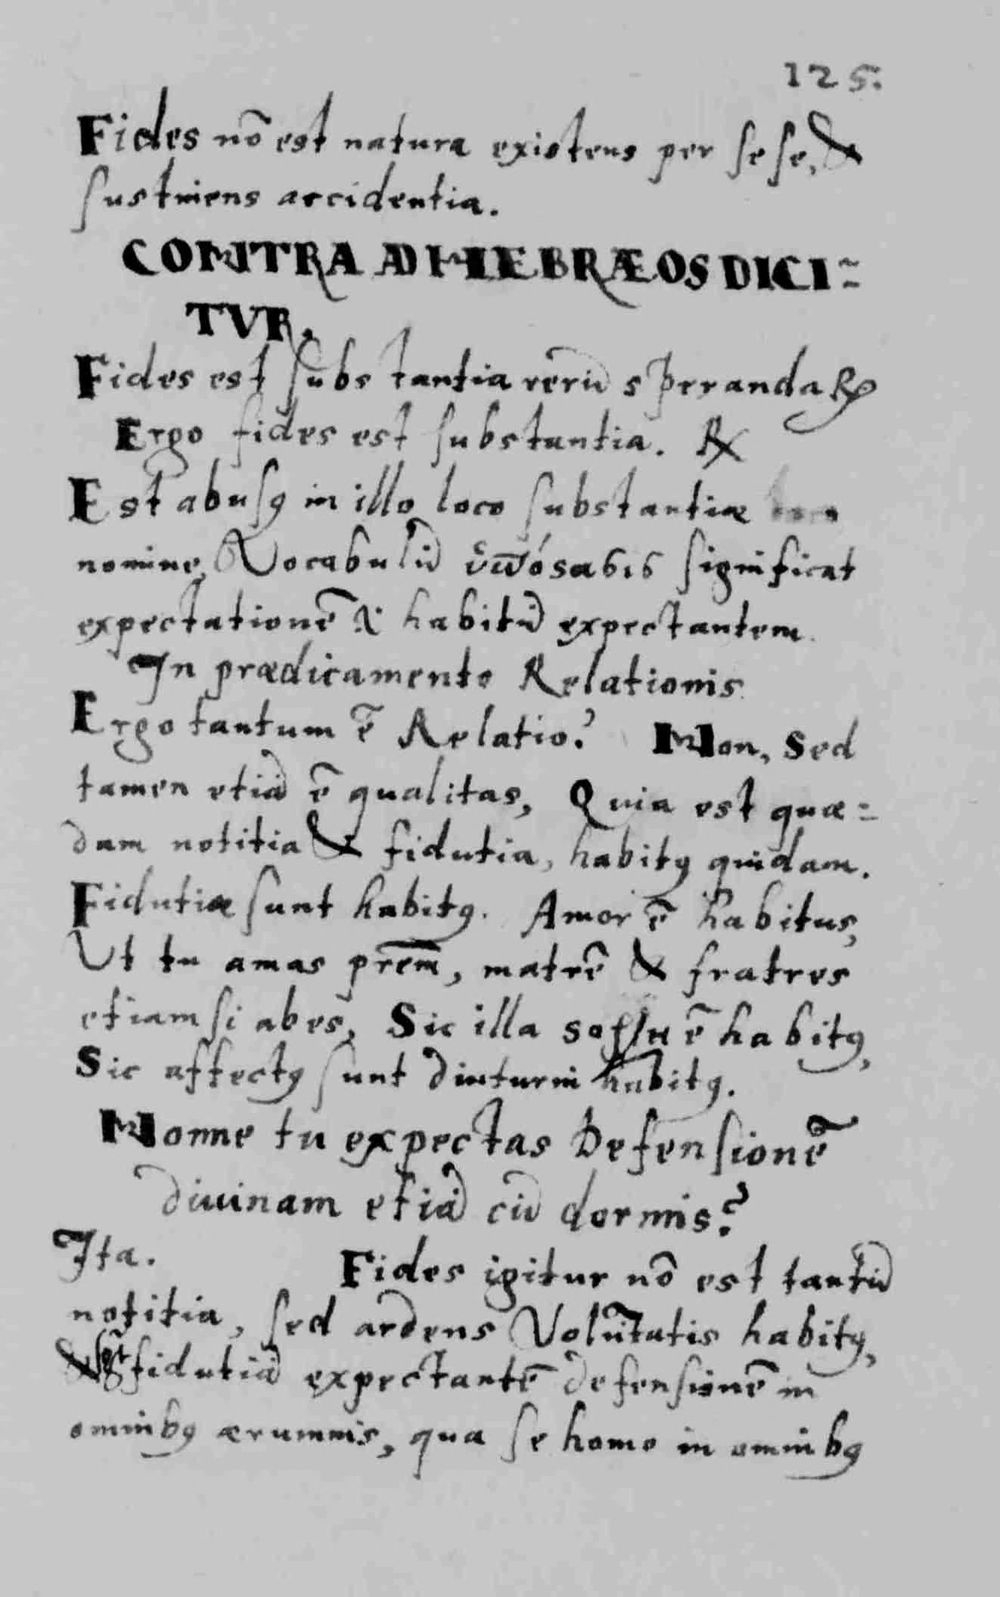 125.
Fides nō est natura existens per sese, &
sustinens accidentia.
CONTRA AD HEBRÆOS DICI=
TVR.
Fides est substantia rerū sperandaꝝ
Ergo fides est substantia. ℞
Est abusꝰ in illo loco substantiæ
nomine, Vocabulū ὑπόςασις significat
expectationē & habitū expectantem
In prædicamento Relationis
Ergo tantum ē Relatio? Non, Sed
tamen etiā ē qualitas, Quia est quæ=
dam notitia & fidutia, habitꝰ quidam.
Fidutiæ sunt habitꝰ. Amor ē habitus,
Ut tu amas prēm, matrē & fratres
etiam si abes, Sic illa ē habitꝰ,
Sic affectꝰ sunt diuturni habitꝰ.
Nonne tu expectas Defensionē
diuinam etiā cū dormis?
Ita. Fides igitur nō est tantū
notitia, sed ardens Volūtatis habitꝰ,
& fidutiā expectantē defensionē in
omnibꝰ ærumnis, qua se homo in omnibꝰ